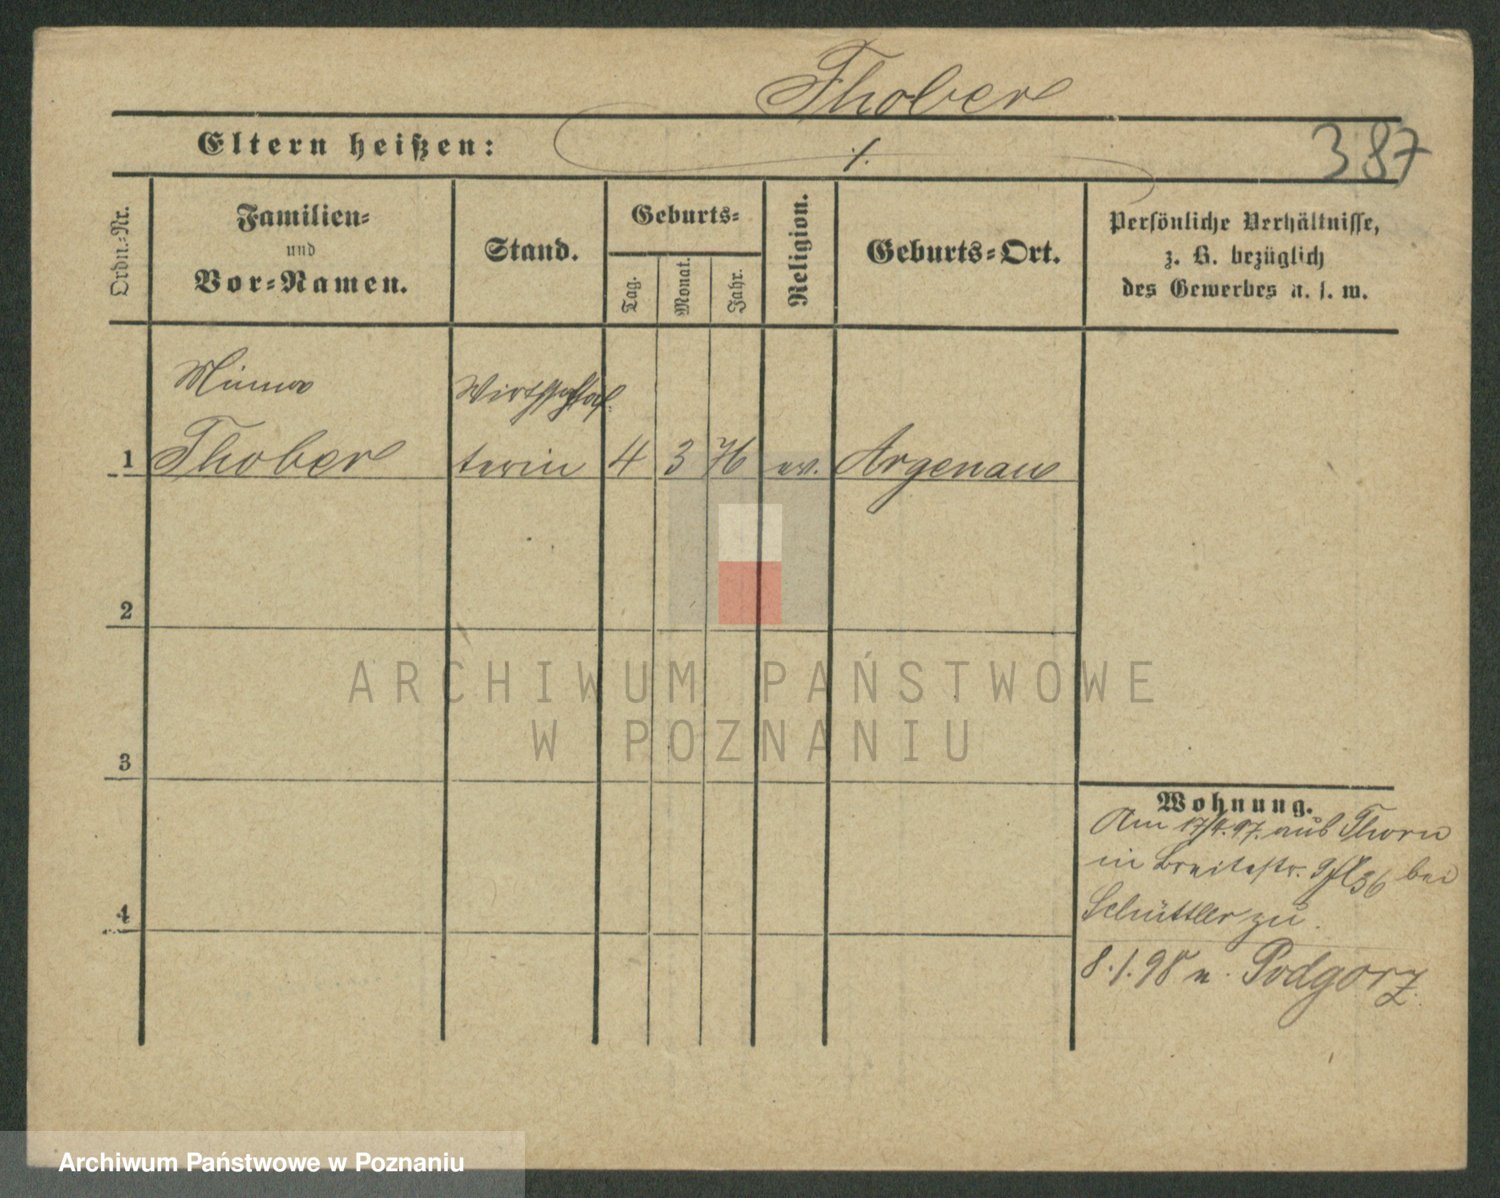 Thober
Eltern heißen: ./.
387
Ordn.-Nr.
Familien-
und
Vor-Namen.
Stand.
Geburts-
Tag.
Monat.
Jahr.
Religion.
Geburts-Ort.
Persönliche Verhältnisse,
z. B. bezüglich
des Gewerbes u. s. w.
Minna
1 Thober
4 3 76 ev. Argenau
2
3
4
Wohnung.
Am 17/4. 97. aus Thorn
in Breitestr. bei
Schüttler zu.
8.1.98 n. Podgorz
ARCHIWUM PAŃSTWOWE
W POZNANIU
Archiwum Państwowe w Poznaniu